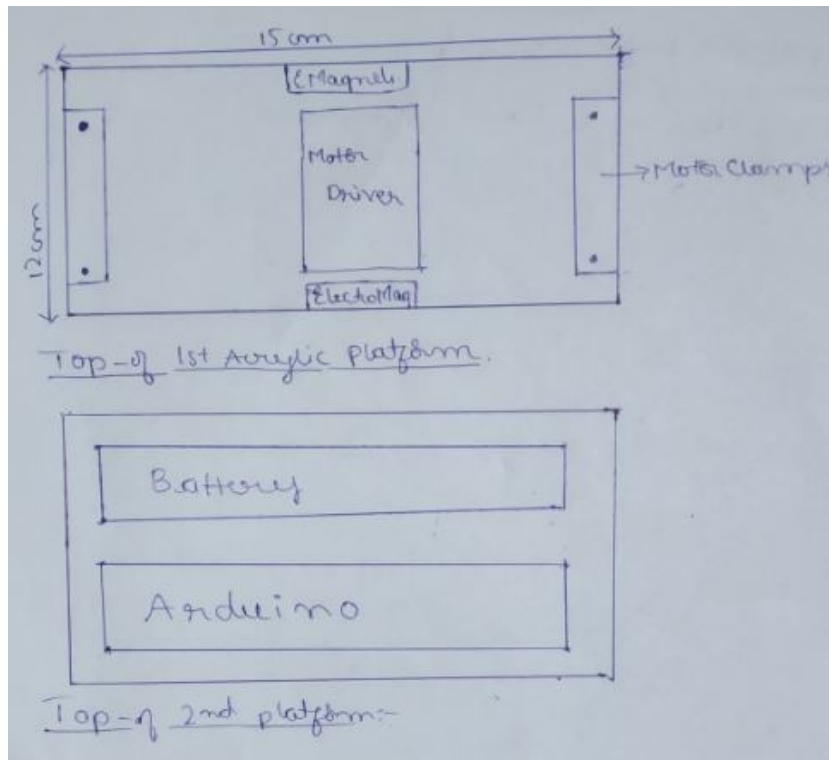 15 cm
EMagnet
Motor
Driver
Motor Clamps
12cm
ElectroMag
Top-of 1st Acrylic platform.
Battery
Arduino
Top-of 2nd platform:-